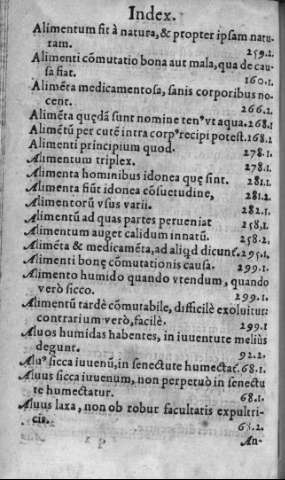 Index.
Alimentum fit à natura, & propter ipsam natu-
ram.
259.2.
Alimenti cōmutatio bona aut mala, qua de cau-
sa fiat.
160.1.
Alimēta medicamentosa, sanis corporibus no-
cent.
266.2.
Alimēta quędā sunt nomine tenꝰ vt aqua. 268.1
Alimētū per cutē intra corpꝰ recipi potest. 168.1
Alimenti principium quod.
278.1.
Alimentum triplex.
278.1.
Alimenta hominibus idonea quę sint.
281.1.
Alimenta fiūt idonea cōsuetudine,
281.2.
Alimentorū vsus varii.
282.1.
Alimentū ad quas partes perueniat
258,1.
Alimentum auget calidum innatū.
258.2.
Alimēta & medicamēta, ad aliqd dicunt̃. 295.1.
Alimenti bonę cōmutationis causa.
299.1.
Alimento humido quando vtendum, quando
verò sicco.
299.1.
Alimentū tardè cōmutabile, difficilè exoluitur:
contrarium verò, facilè.
299.1
Aluos humidas habentes, in iuuentute meliùs
degunt.
92.2.
Aluꝰ sicca iuuenū, in senectute humectat̃. 68.1.
Aluus sicca iuuenum, non perpetuò in senectu
te humectatur.
68.1.
Aluus laxa, non ob robur facultatis expultri-
cis.
63.2.
An-